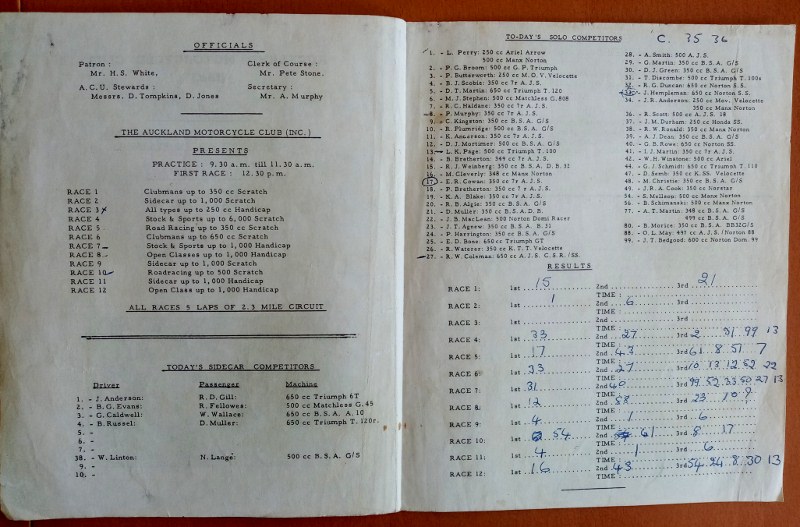 OFFICIALS
Patron :
Mr. H.S. White,
Clerk of Course :
Mr. Pete Stone.
A.C.U. Stewards :
Messrs. D. Tompkins, D. Jones
Secretary :
Mr. A. Murphy
THE AUCKLAND MOTORCYCLE CLUB (INC.)
PRESENTS
PRACTICE : 9.30 a.m. till 11.30 a.m.
FIRST RACE : 12.30 p.m.
RACE 1 Clubmans up to 350 cc Scratch
RACE 2 Sidecar up to 1,000 Scratch
RACE 3 All types up to 250 cc Handicap
RACE 4 Stock & Sports up to 6,000 Scratch
RACE 5 Road Racing up to 350 cc Scratch
RACE 6 Clubmans up to 650 cc Scratch
RACE 7 Stock & Sports up to 1,000 Handicap
RACE 8 Open Classes up to 1,000 Handicap
RACE 9 Sidecar up to 1,000 Scratch
RACE 10 Roadracing up to 500 Scratch
RACE 11 Sidecar up to 1,000 Handicap
RACE 12 Open Class up to 1,000 Handicap
ALL RACES 5 LAPS OF 2.3 MILE CIRCUIT
TODAY'S SIDECAR COMPETITORS
Driver Passenger Machine
1. - J. Anderson: R.D. Gill: 650 cc Triumph 6T
2. - B.G. Evans: R. Fellowes: 500 cc Matchless G.45
3. - G. Caldwell: W. Wallace: 650 cc B.S.A. A.10
4. - B. Russel: D. Muller: 650 cc Triumph T.120r.
5. -
6. -
7. -
38. - W. Linton: N. Lange: 500 cc B.S.A. G/S
9. -
10. -
TO-DAY'S SOLO COMPETITORS C. 35 36
1. - L. Perry: 250 cc Ariel Arrow
500 cc Manx Norton
2. - P.G. Broom: 500 cc G.P. Triumph
3. - P. Butterworth: 250 cc M.O.V. Velocette
4. - B.J. Scobie: 350 cc 7r A.J.S.
5. - D.T. Martin: 650 cc Triumph T.120
6. - M.J. Stephen: 500 cc Matchless G.80S
7. - R.C. Haldane: 350 cc 7r A.J.S.
8. - P. Murphy: 350 cc 7r A.J.S.
9. - C. Kingston: 350 cc B.S.A. G/S
10. - R. Plumridge: 500 cc Manx Norton
11. - K. Anderson: 350 cc 7r A.J.S.
12. - D.J. Mortimer: 500 cc B.S.A. G/S
13. - L.K. Page: 500 cc Triumph T.100
14. - B. Bretherton: 349 cc 7r A.J.S.
15. - R.J. Weinberg: 350 cc B.S.A. D.B. 32
16. - M. Cleverly: 348 cc Manx Norton
17. - E.R. Cowan: 350 cc 7r A.J.S.
18. - P. Bretherton: 350 cc 7 r A.J.S.
19. - K.A. Blake: 350 cc 7r A.J.S.
20. - R.D. Algie: 350 cc B.S.A. G/S
21. - D. Muller: 350 cc B.S.A.D.B.
22. - J.B. MacLean: 500 Norton Domi Racer
23. - J.T. Agrew: 350 cc B.S.A. B.31
24. - P. Herrington: 350 cc B.S.A. G/S
25. - E.D. Bone: 650 cc Triumph GT
26. - R. Waterer: 350 cc K.T.T. Velocette
27. - R.W. Coleman: 650 cc A.J.S. C.S.R./SS.
28. - A. Smith: 500 A.J.S.
29. - G. Martin: 350 cc B.S.A. G/S
30. - D.J. Green: 350 cc B.S.A. G/S
31. - T. Discombe: 500 cc Triumph T.100s
32. - R.G. Duncan: 650 cc Norton S.S.
33. - J. Hempleman: 650 cc Norton S.S.
34. - J.R. Anderson: 250 cc Mov. Velocette
350 cc Manx Norton
36. - R. Scott: 500 cc A.J.S. 18
37. - J.M. Durham: 250 cc Honda SS.
38. - R.W. Ronald: 350 cc Manx Norton
39. - A.J. Dean: 350 cc B.S.A. G/S
40. - G.B. Rowe: 650 cc Norton SS.
41. - I.J. Martin: 350 cc 7r A.J.S.
42. - W.H. Winstone: 500 cc Ariel
44. - G.J. Schmidt: 650 cc Triumph T.110
47. - D. Semb: 350 cc K.SS. Velocette
48. - M. Christie: 350 cc B.S.A. G/S
49. - J.R.A. Cook: 350 cc Norstar
54. - E. McIleon: 500 cc Manx Norton
56. - B. Schimanski: 500 cc Manx Norton
77. - A.T. Martin: 348 cc B.S.A. G/S
499 cc B.S.A. G/S
80. - B. Morice: 350 cc B.S.A. BB32G/S
88. - O.L. May: 497 cc A.J.S./Norton 88
99. - J.T. Bedgood: 600 cc Norton Dom. 99
RESULTS
RACE 1: 1st 15 2nd 3rd 21
TIME :
RACE 2: 1st 1 2nd 6 3rd
TIME :
RACE 3: 1st 2nd 3rd
TIME :
RACE 4: 1st 33 2nd 27 3rd 2 31 99 13
TIME :
RACE 5: 1st 17 2nd 43 3rd 61 8 51 7
TIME :
RACE 6: 1st 33 2nd 27 3rd 10 13 12 52 22
TIME :
RACE 7: 1st 31 2nd 40 3rd 99 52 33 50 27 13
TIME :
RACE 8: 1st 12 2nd 58 3rd 23 10 9
TIME :
RACE 9: 1st 4 2nd 1 3rd 6
TIME :
RACE 10: 1st 54 2nd 61 3rd 8 17
TIME :
RACE 11: 1st 4 2nd 1 3rd 6
TIME :
RACE 12: 1st 16 2nd 43 3rd 54 34 8 30 13
TIME :